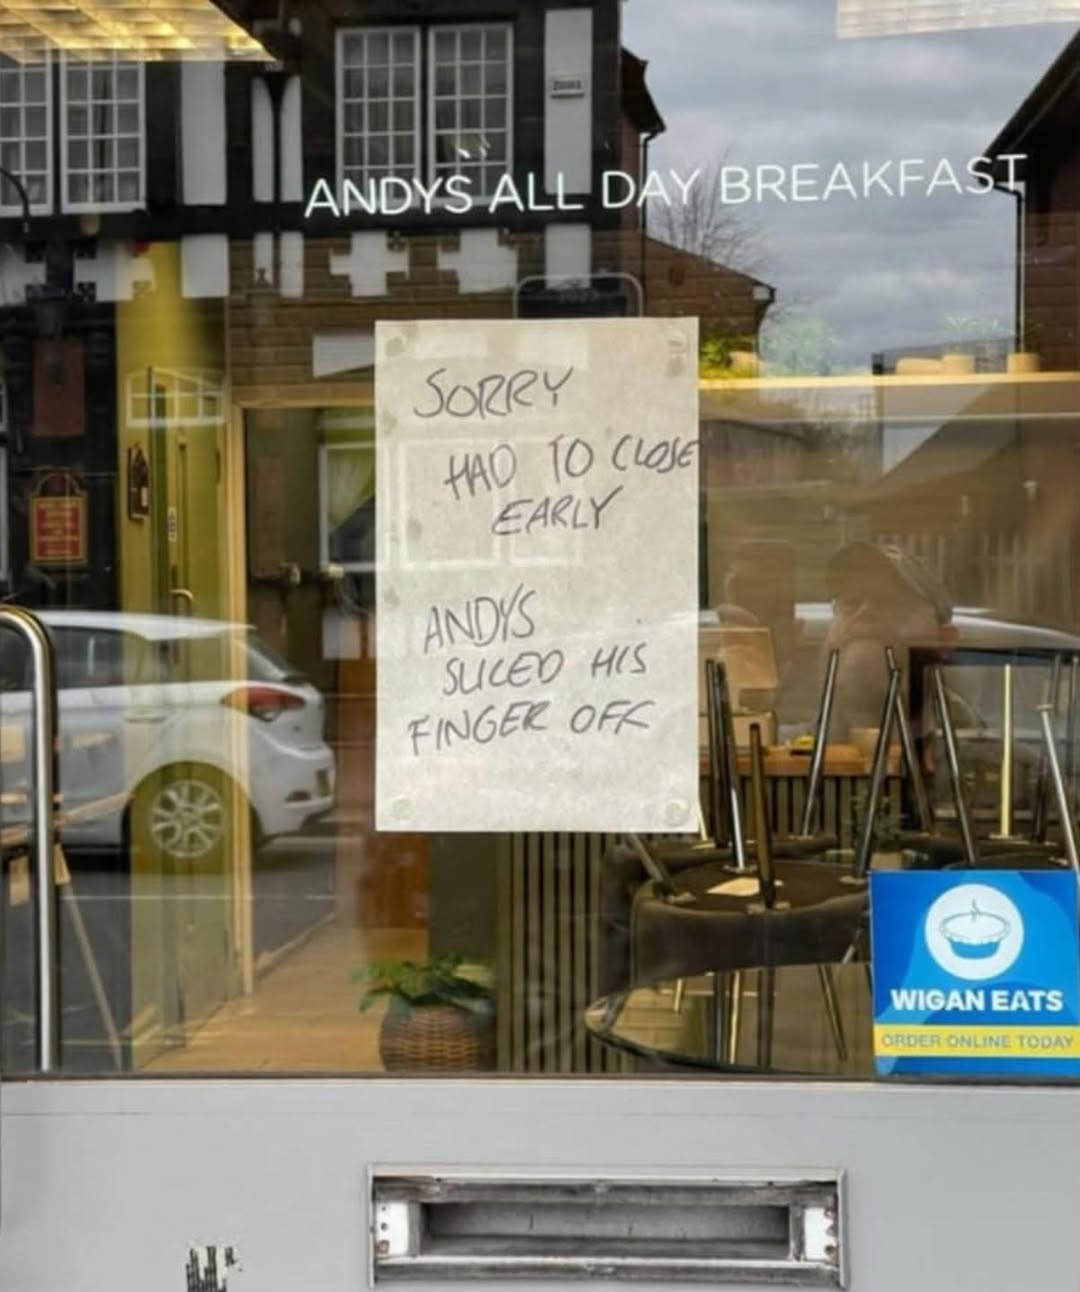 ANDYS ALL DAY BREAKFAST
SORRY
HAD TO CLOSE
EARLY
ANDYS
SLICED HIS
FINGER OFF
WIGAN EATS
ORDER ONLINE TODAY